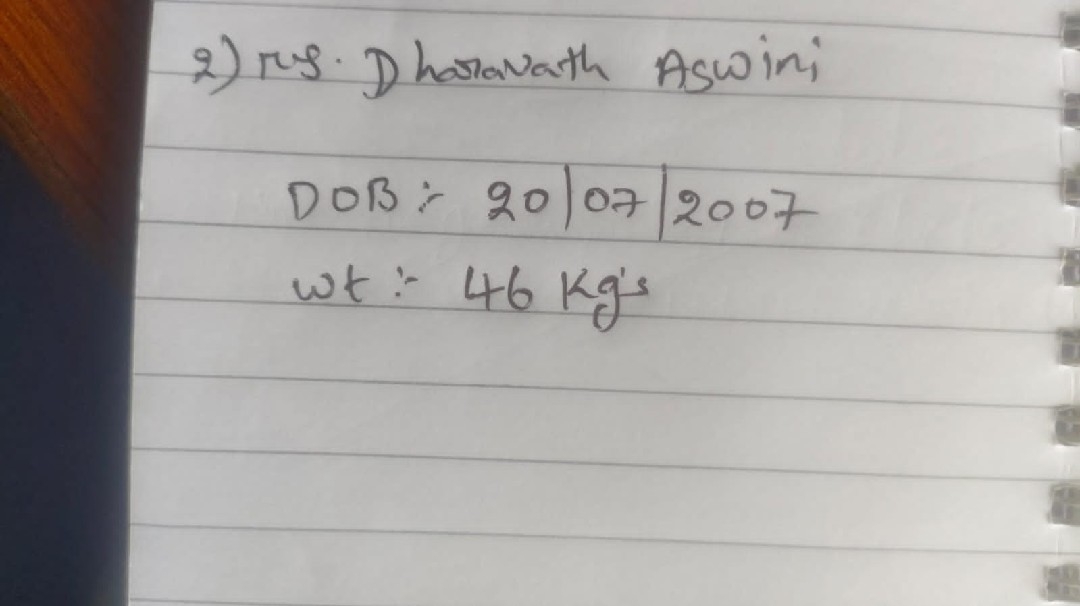 2) Ms. Dharavath Aswini
DOB :- 20/07/2007
wt :- 46 Kg's